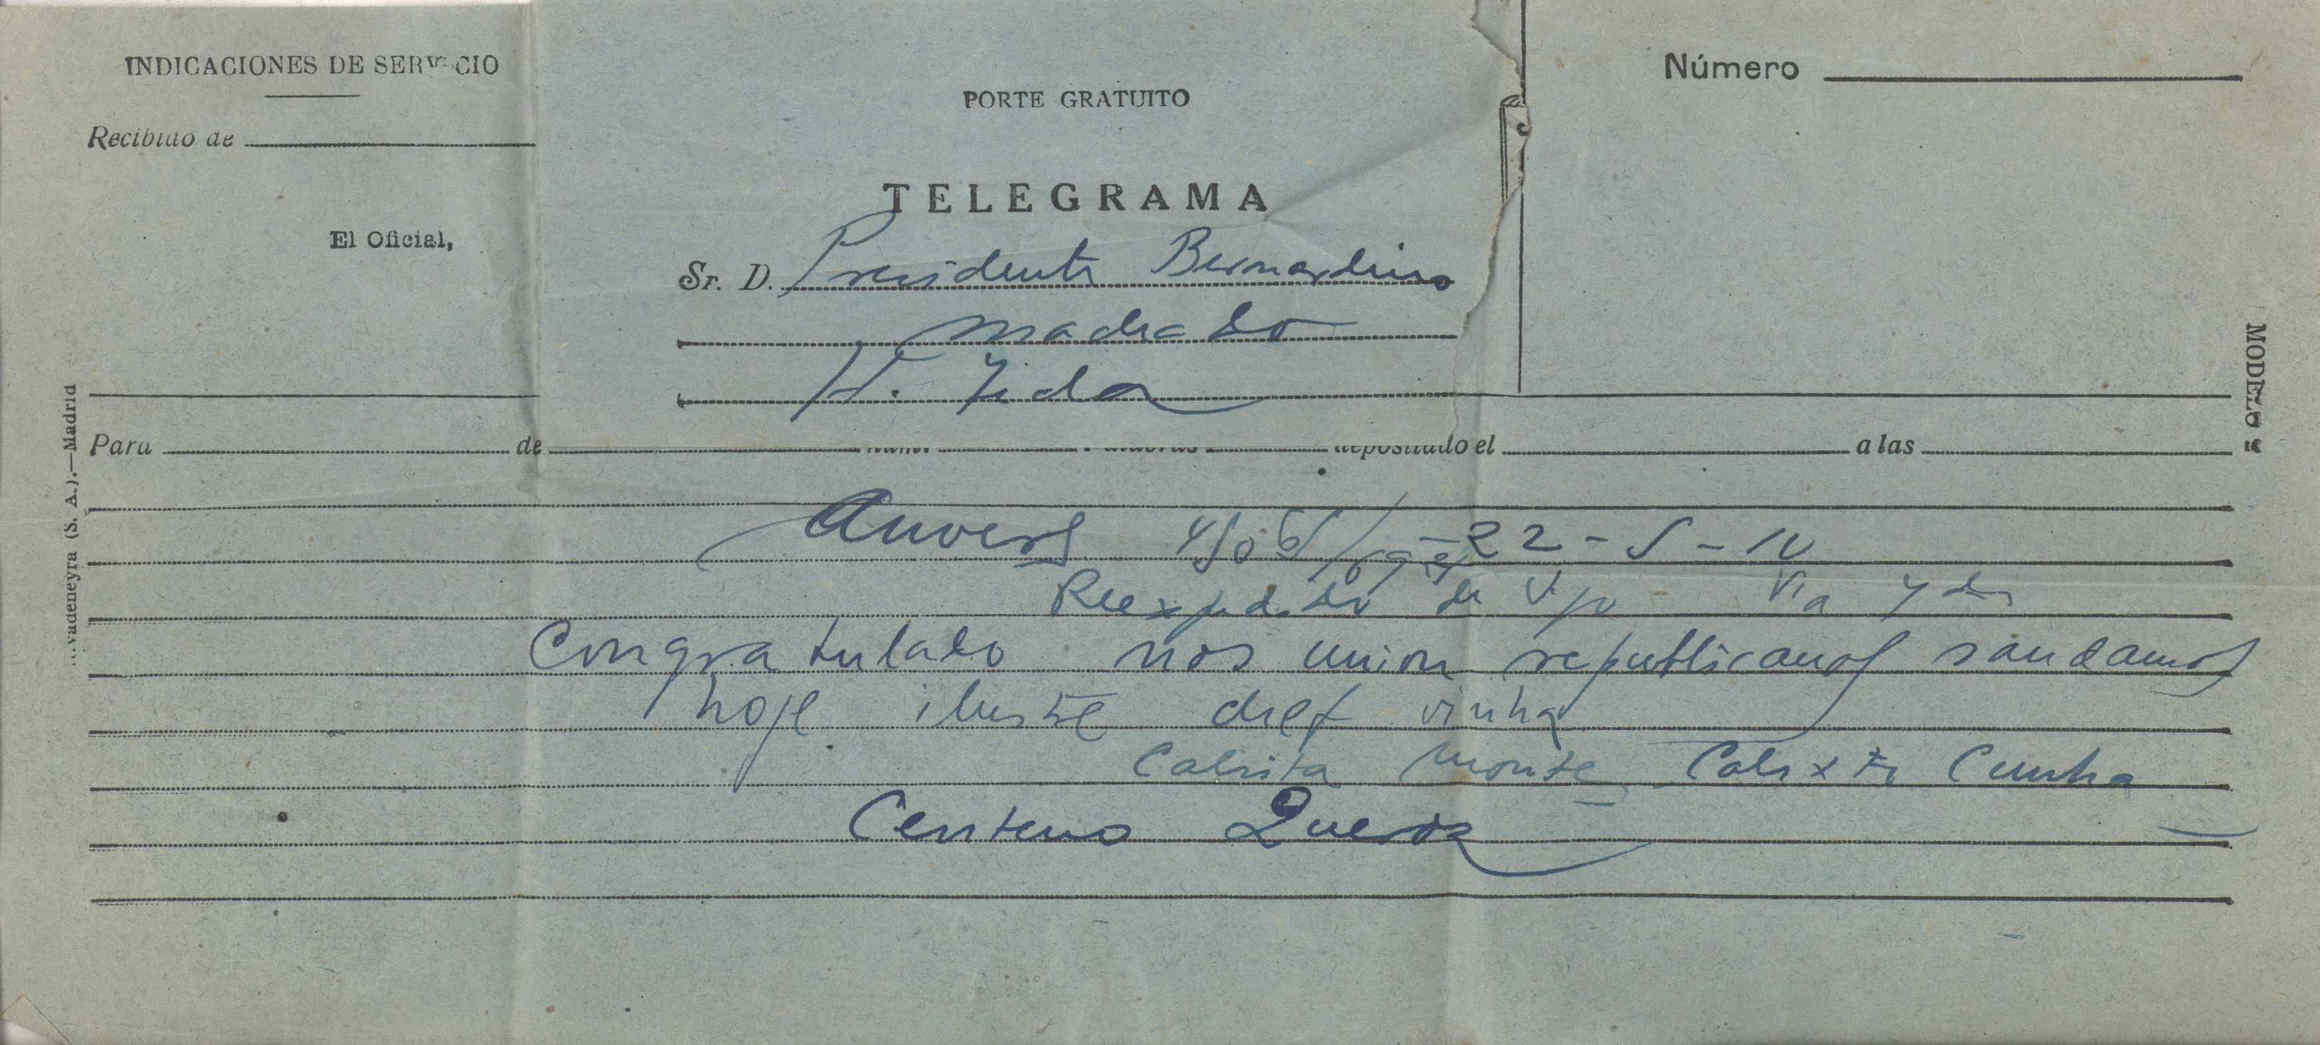 INDICACIONES DE SERVICIO
Recibido de
El Oficial,
PORTE GRATUITO
TELEGRAMA
Sr. D. Presidente Bernardino
machado
H. Tida
Número
MODELO
Rivadeneyra (S. A.).—Madrid
Para de núm. Palabras depositado el a las
Anvers 22-5-
Reexpedido de Vigo Via
Congratulado nos union republicanos saudamos
hoje ilustre chef
Monte Calixto Cunha
Centeno Queroz